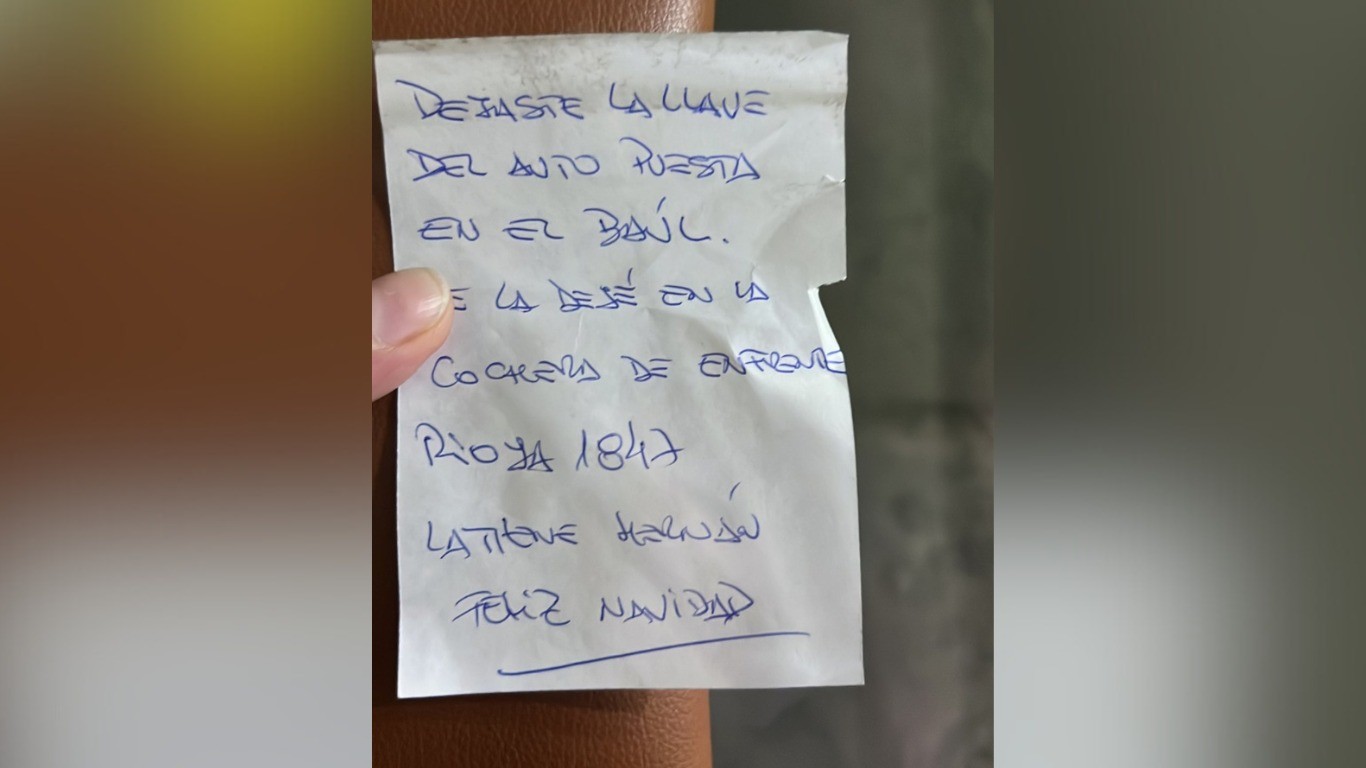 DEJASTE LA LLAVE
DEL AUTO PUESTA
EN EL BAÚL.
LA DEJÉ EN LA
COCHERA DE ENFRENTE
RIOJA 1847
LA TIENE HERNÁN
FELIZ NAVIDAD